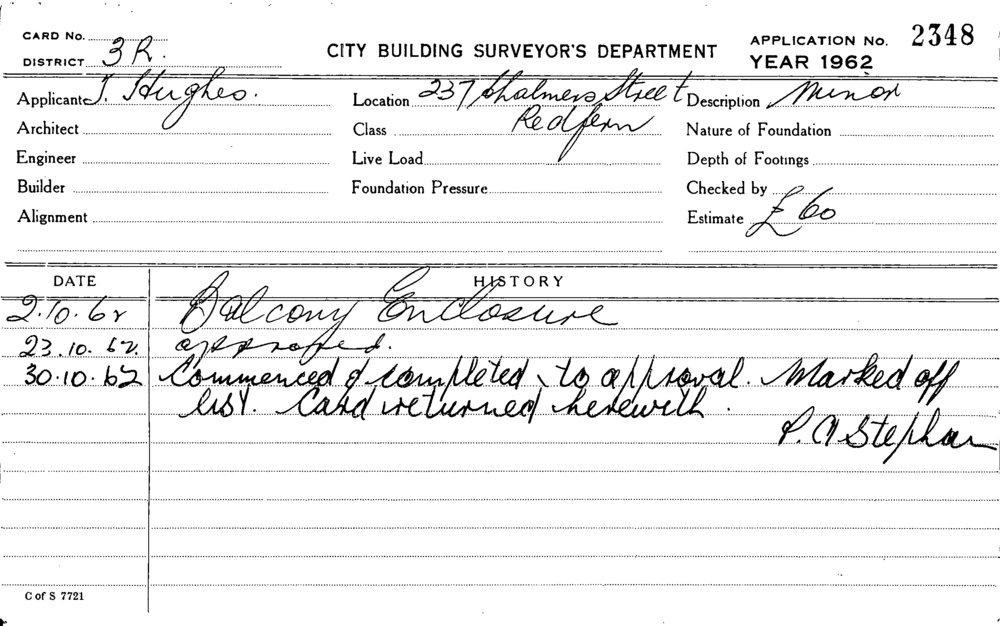 CARD No.
CITY BUILDING SURVEYOR'S DEPARTMENT
APPLICATION No. 2348
DISTRICT 3R.
YEAR 1962
Applicant T. Hughes.
Location 237 Chalmers Street
Description Minor
Architect
Class Redfern
Nature of Foundation
Engineer
Live Load
Depth of Footings
Builder
Foundation Pressure
Checked by
Alignment
Estimate £60
DATE HISTORY
2.10.62 Balcony Enclosure
23.10.62. approved.
30.10.62 Commenced & completed to approval. Marked off
list. Card returned herewith.
P. A Stephan
C of S 7721